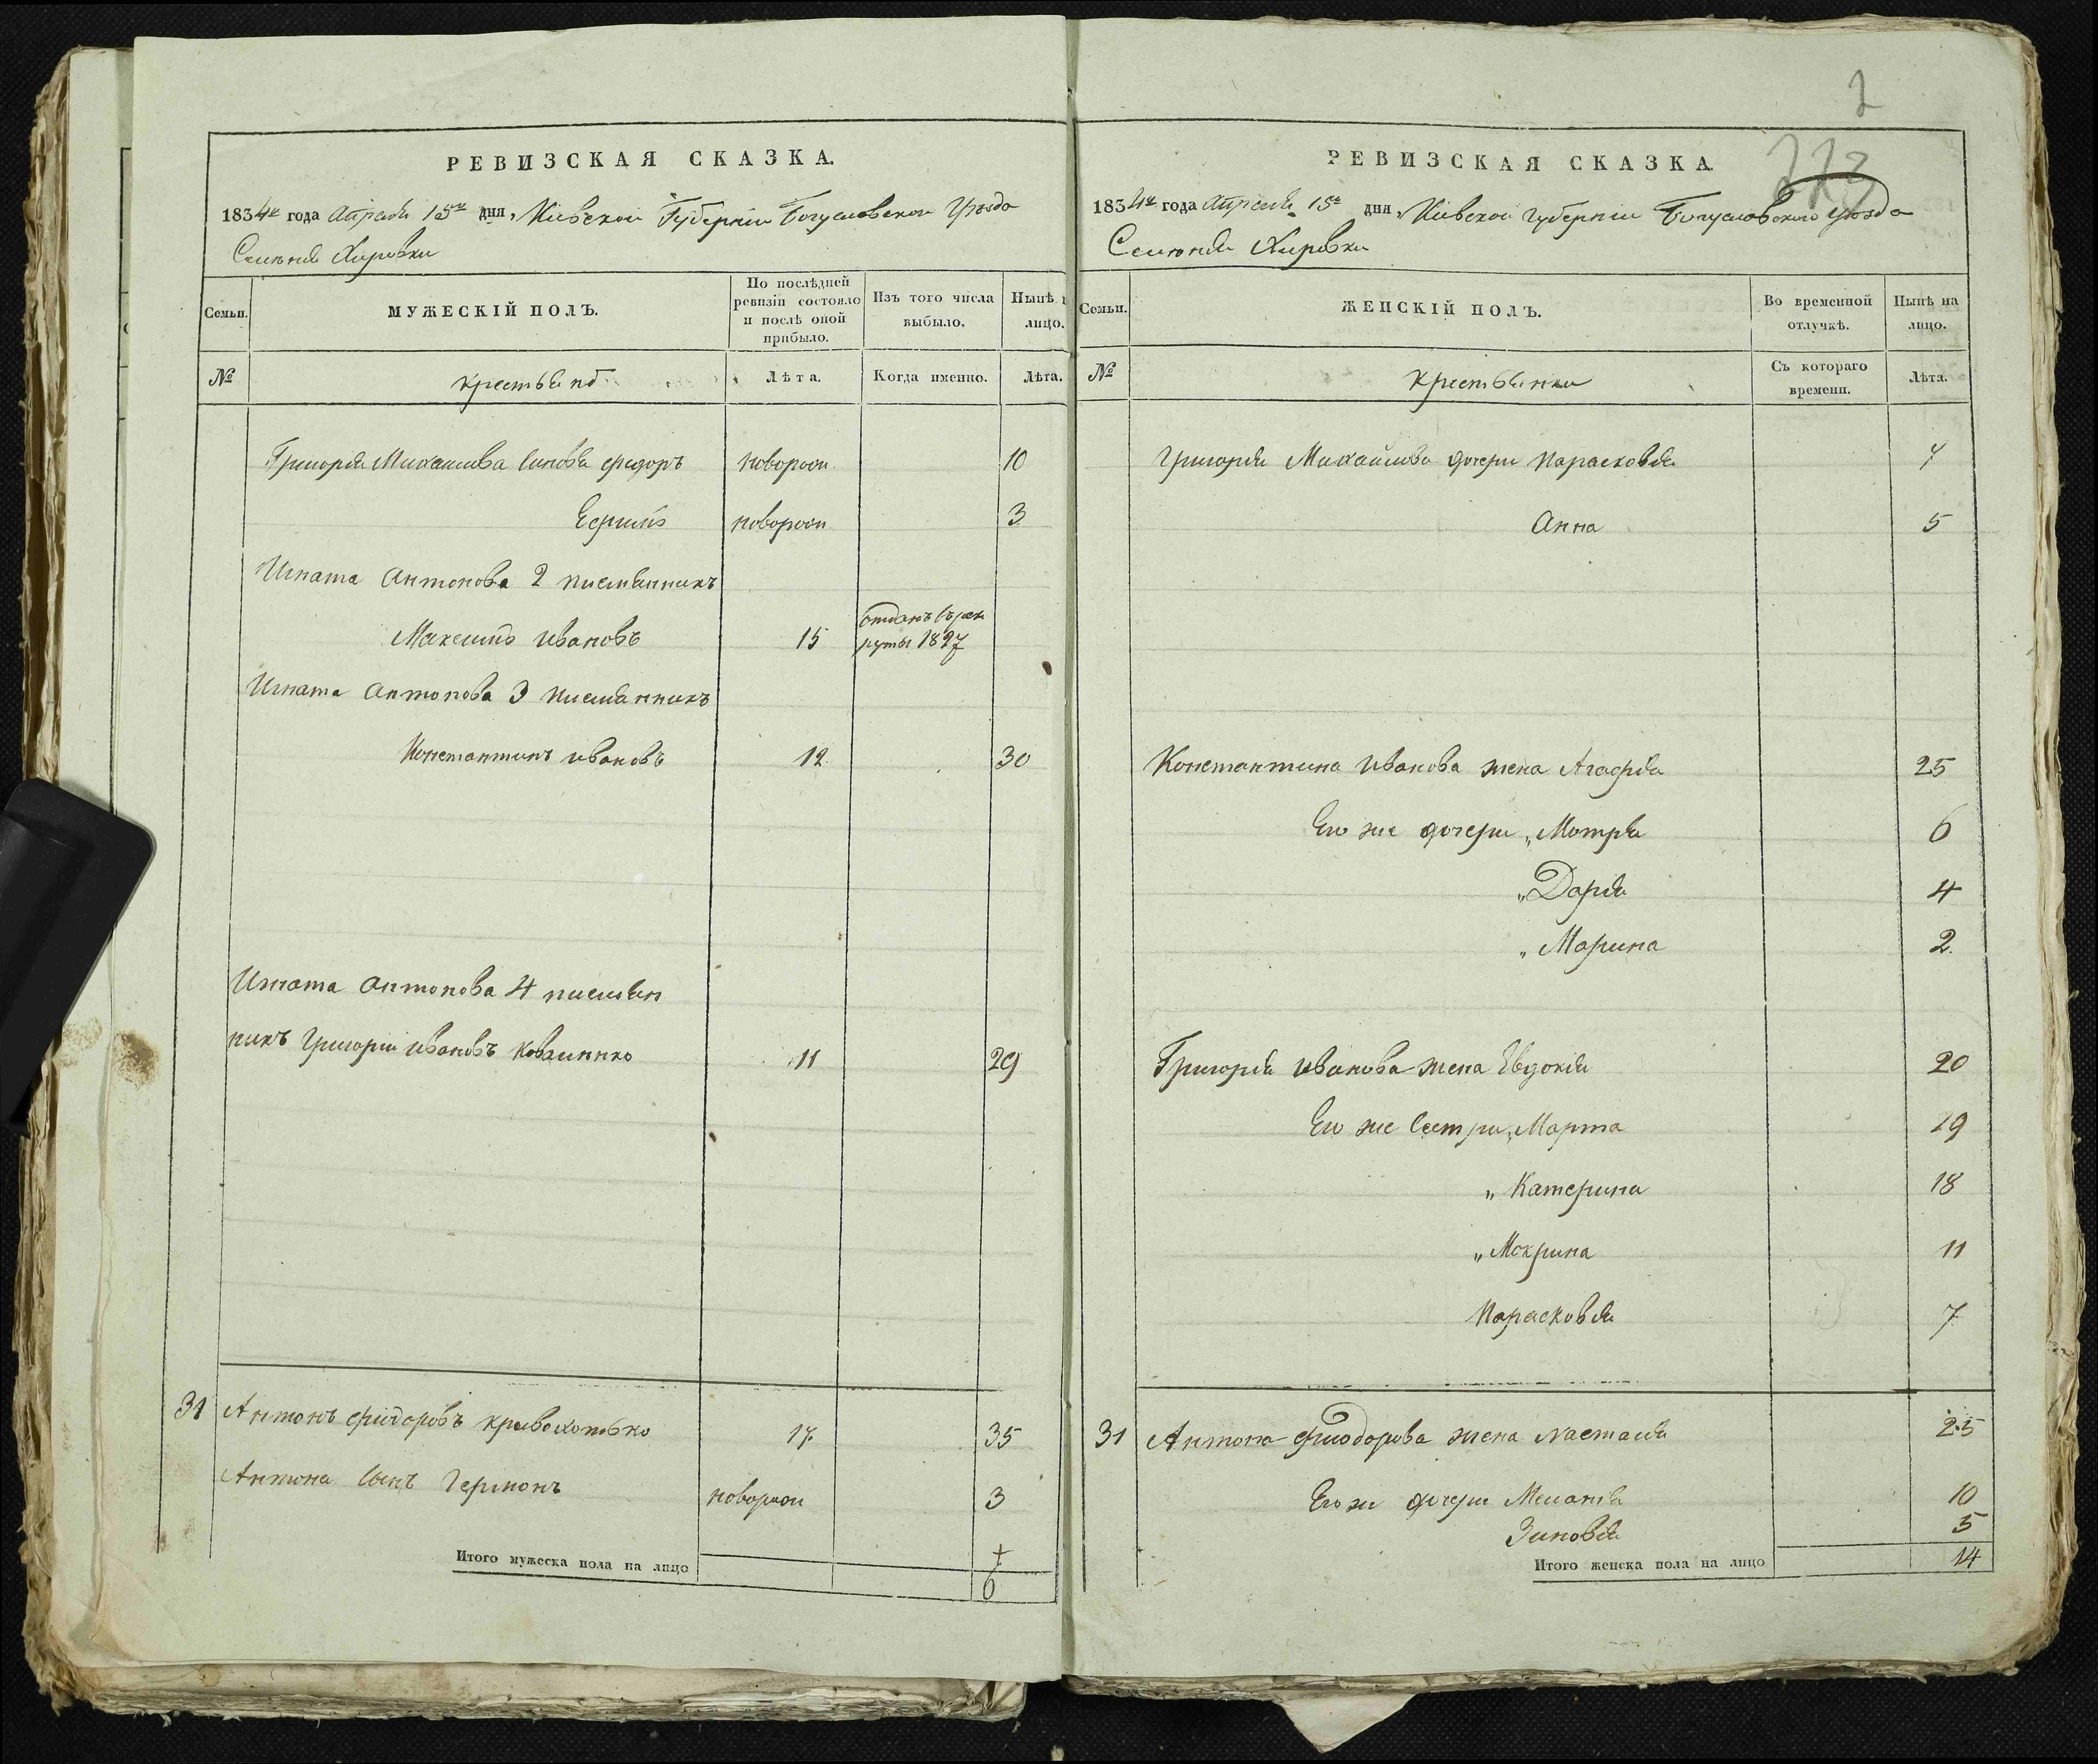 РЕВИЗСКАЯ СКАЗКА.
1834го года Апреля 15го дня, Кіевской Губерніи Богуславского Уезда
Селенія Хировки
Семьи.
МУЖЕСКІЙ ПОЛЪ.
По послѣдней ревизіи состояло и послѣ оной прибыло.
Изъ того числа выбыло.
Нынѣ на лицо.
№
крестьянѣ
Лѣта.
Когда именно.
Лѣта.
Григорія Михаилова сыновья Федоръ новорож 10
Ефимъ новорож 3
Игната Антонова 2 племянникъ
Максимъ Ивановъ 15 отданъ въ рекруты 1827
Игната Антонова 3 племянникъ
Константинъ Ивановъ 12 30
Игната Антонова 4 племян
никъ Григорій Ивановъ 11 29
31 Антонъ Фіодоровъ 17 35
Антона сынъ новорож 3
Итого мужеска пола на лицо 6
2
223
РЕВИЗСКАЯ СКАЗКА.
1834го года Апреля 15го дня, Кіевской Губерніи Богуславского уезда
Селенія Хировки
Семьи.
ЖЕНСКІЙ ПОЛЪ.
Во временной отлучкѣ.
Нынѣ на лицо.
№
Крестьянки
Съ котораго времени.
Лѣта.
Григорія Михайлова дочери Парасковія 7
Анна 5
Константина Иванова жена Агафія 25
Его же дочери „Мотря 6
„Дарія 4
„Марина 2
Григорія Иванова жена Евдокія 20
Его же сестры „Марта 19
„Катерина 18
„Мокрина 11
Парасковія 7
31 Антона Фіодорова жена Настасія 25
Его же дочери Меланія 10
Зиновія 5
Итого женска пола на лицо 14